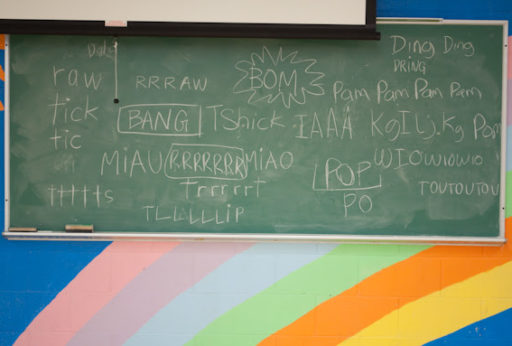 Ding Ding
DRING
raw
RRRAW
BOM
Pam Pam Pam Pam
tick
BANG
TShick
IAAA
Pam
tic
MiAU
RRRRRRR
MiAO
WIOWIOWIO
Trrrrrt
POP
ttttts
TOUTOUTOU
PO